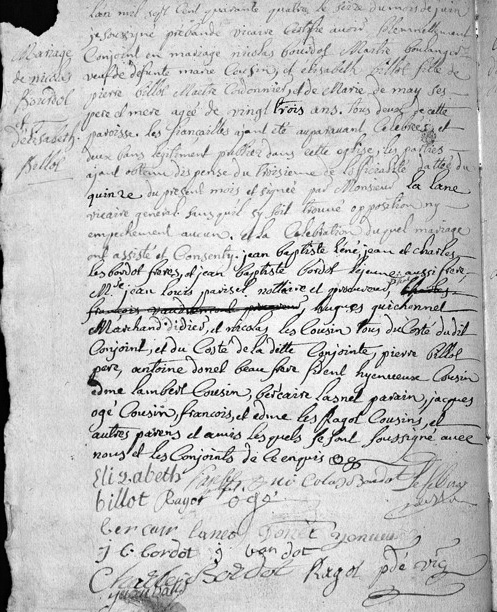 Mariage
de nicolas
Bourdot
& Elisabeth
Billot
lan mil sept cent quarante quatre le seize du mois de juin
je soussigné prébandé vicaire certifie avoir solennellement
Conjoint en mariage nicolas bourdot Maitre boulanger
veuf de defunte marie Cousin, et elisabeth billot fille de
pierre billot Maitre Cordonnier, et de Marie de may ses
pere et mere agéé de vingt trois ans. tous deux de cette
paroisse. les fiançailles ajant été auparavant, Celebrées et
deux bans legitement publiez dans cette eglise, les parties
ajant obtenu dispense du troisieme de l'officialité dattés du
quinze du present mois et signée par Monsieur la lane
vicaire general sans quil sy soit trouvé opposition ny
empechement aucun. et a la Celebration duquel mariage
ont assisté et Consenty. jean baptiste rené jean et charles
les bordot freres, et jean baptiste bordot le jeune aussi frere,
Me jean louis parisel nottaire et procureur,
hugues guichonnet
Marchand et nicolas les Cousin tous du Costé dudit
Conjoint, et du Costé de la ditte Conjointe, pierre billot
pere, antoine donet beau frere
edme lambert Cousin, bercaire lasnet parain, jacques
ogé Cousin, francois, et edme les Ragot Cousins, et
autres parens et amis lesquels se sont soussigné avec
nous et les Conjoints de Ce enquis
Elizabeth nicolas Bordot
billot Ragot ogé
bercair lanes donet
J B bordot
Charles Bordot Ragot pdé vic